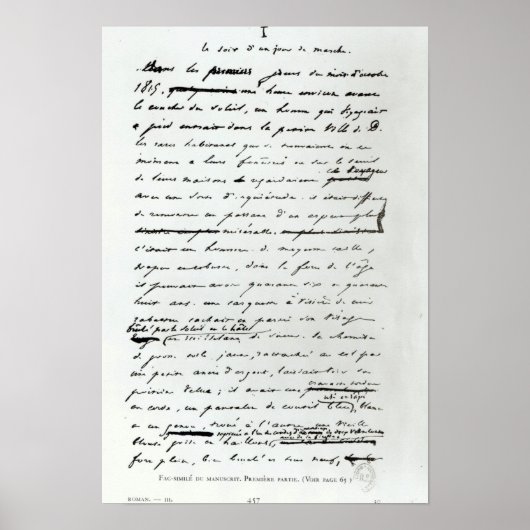 I
le soir d'un jour de marche.
Dans les premiers jours du mois d'octobre
1815, une heure environ avant
le coucher du soleil, un homme qui voyageait
a pied entrait dans la petite ville de D.
les rares habitants qui se trouvaient en ce
moment a leurs fenêtres ou sur le seuil
de leurs maisons regardaient ce voyageur
avec une sorte d'inquiétude. il était difficile
de rencontrer un passant d'un aspect plus
misérable.
c'était un homme de moyenne taille,
trapu et robuste, dans la force de l'âge
il pouvait avoir quarante six ou quarante
huit ans. une casquette à visière de cuir
rabattue cachait en partie son visage
brûlé par le soleil et le hâle
et ruisselant de sueur. sa chemise
de grosse toile jaune, rattachée au col par
une petite ancre d'argent, laissait voir sa
poitrine velue; il avait une cravate
en corde, un pantalon de coutil bleu, usé et râpé
blanc
à un genou, troué à l'autre une vieille
blouse grise en haillons,
fort plein, bien bouclé et tout neuf,
FAC-SIMILÉ DU MANUSCRIT. PREMIÈRE PARTIE. (VOIR PAGE 65.)
ROMAN. — III. 457